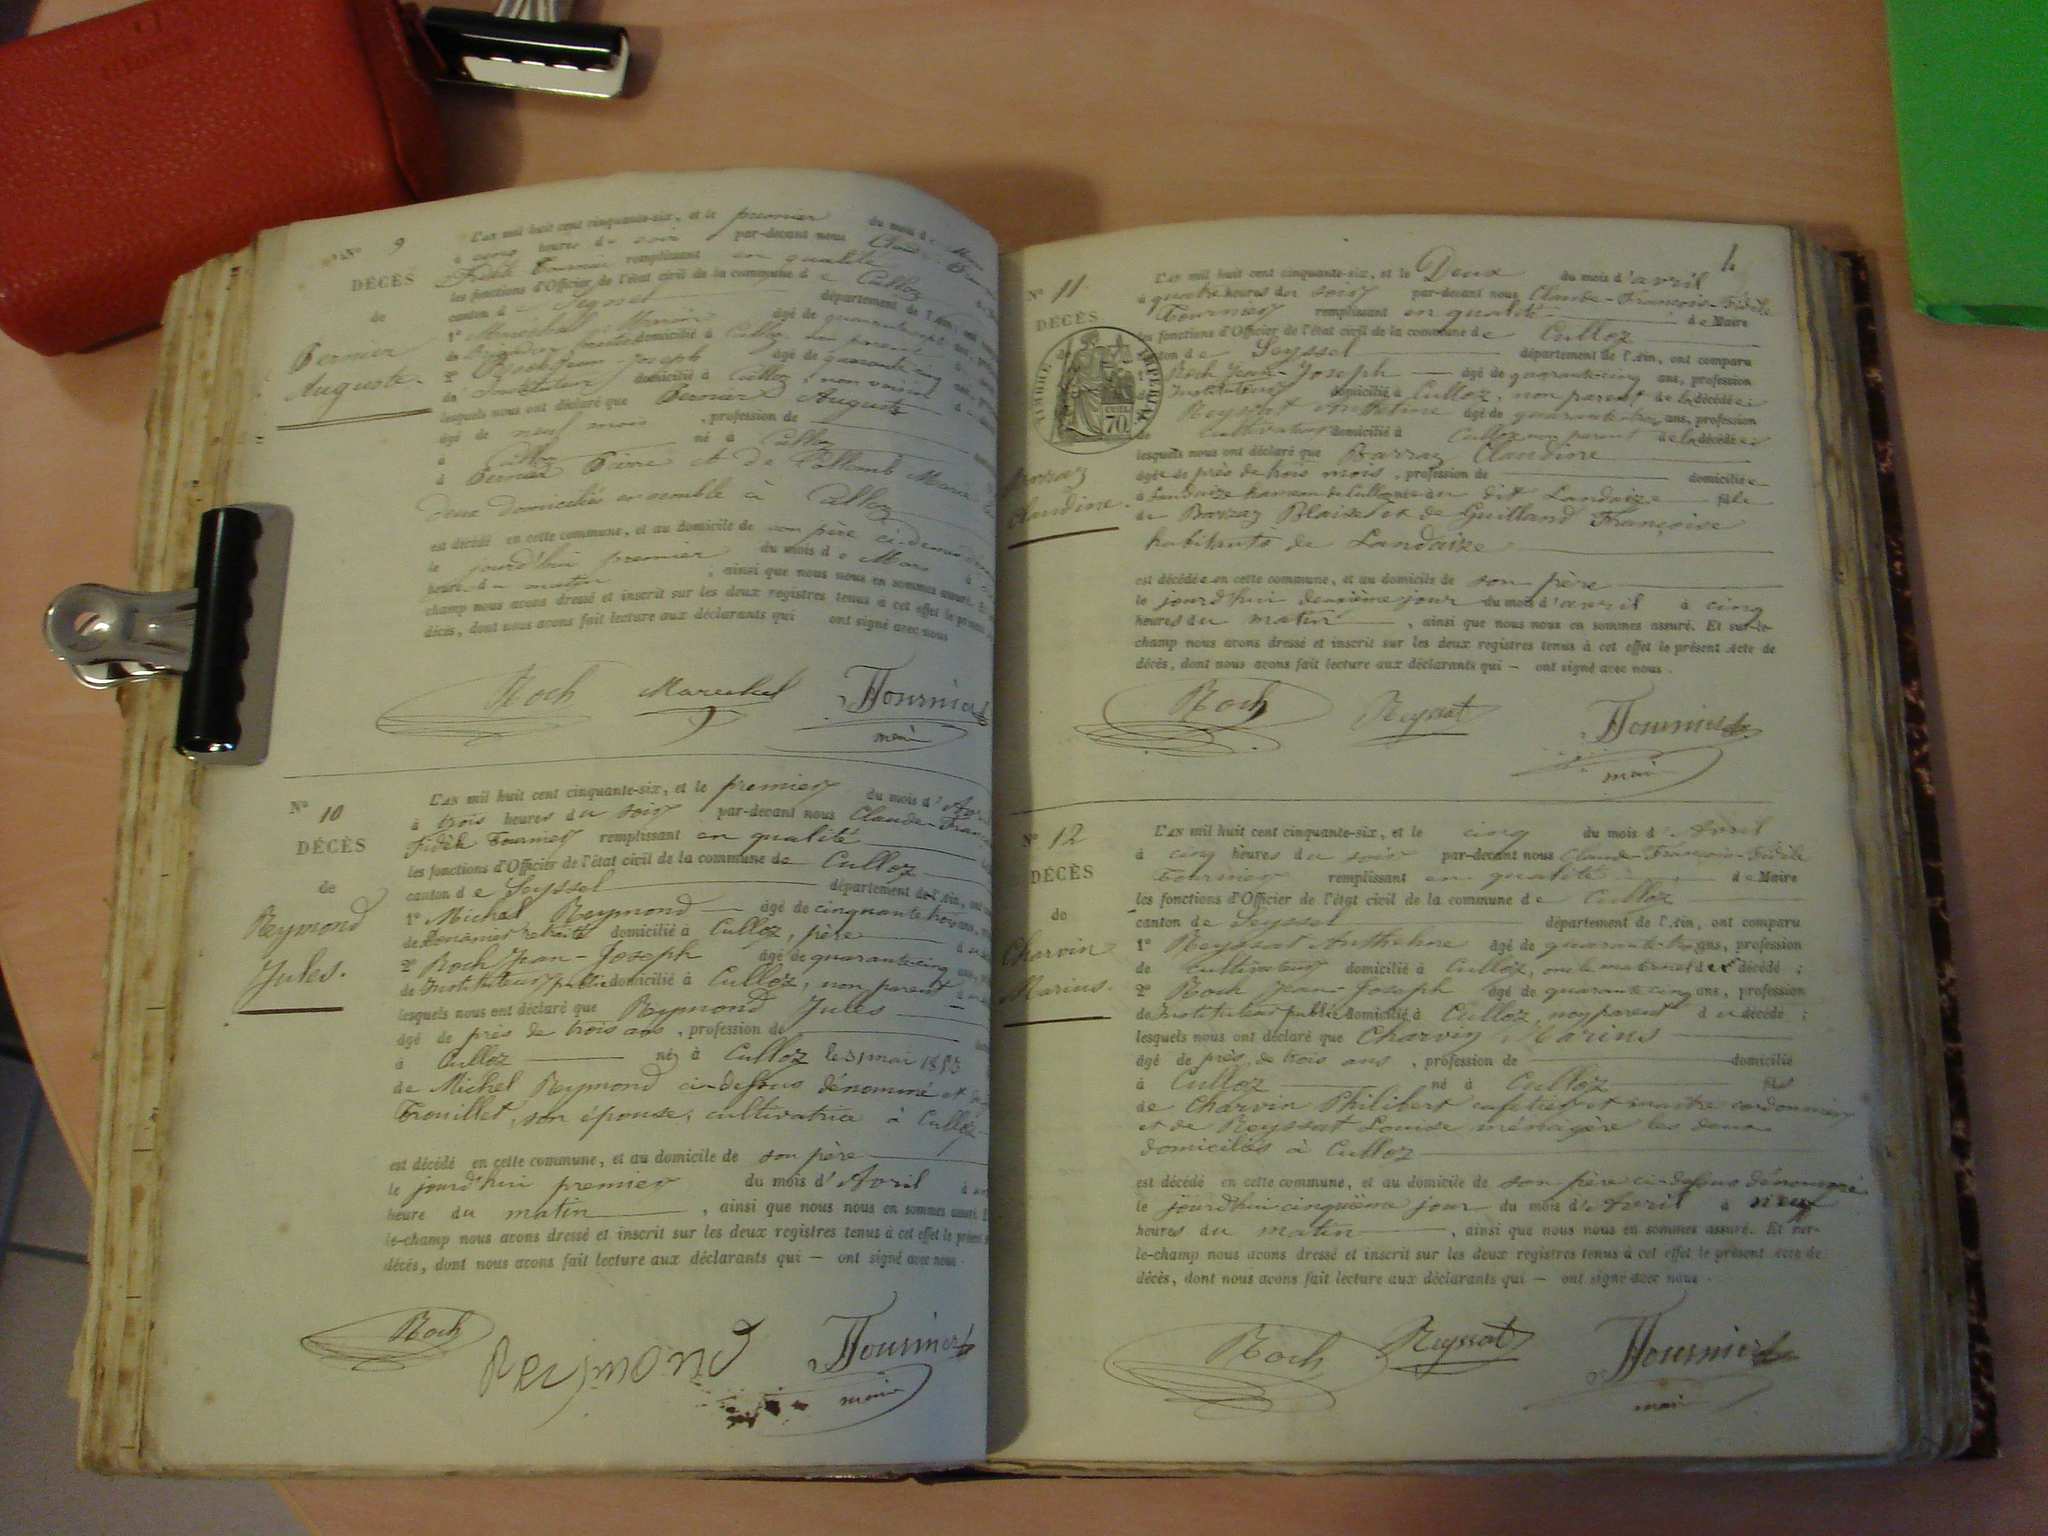 N° 9
DÉCÈS
de
Bernier
Auguste.
L'AN mil huit cent cinquante-six, et le premier du mois de Mars
à cinq heures du soir par-devant nous
Fidèle Fournier remplissant en qualité
les fonctions d'Officier de l'état civil de la commune de Culloz
canton de Seyssel département de l'Ain,
1° Maréchal âgé de quarante
domicilié à Culloz, non parent
2° Roch Jean-Joseph âgé de quarante cinq ans,
de Instituteur domicilié à Culloz, non voisin
lesquels nous ont déclaré que Bernier Auguste
âgé de neuf mois, profession de
à Culloz né à Culloz
à Bernier Pierre et de Collomb Marie
deux domiciliés ensemble à Culloz
est décédé en cette commune, et au domicile de son père ci-dessus
le jourd'hui premier du mois de Mars à
heure du matin, ainsi que nous nous en sommes assuré. Et
champ nous avons dressé et inscrit sur les deux registres tenus à cet effet le présent
décès, dont nous avons fait lecture aux déclarants qui ont signé avec nous
Roch Marechal Fournier
maire
N° 10
DÉCÈS
de
Reymond
Jules.
L'AN mil huit cent cinquante-six, et le premier du mois d'Avril
à trois heures du soir par-devant nous Claude-Franç
Fidèle Fournier remplissant en qualité
les fonctions d'Officier de l'état civil de la commune de Culloz
canton de Seyssel département de l'Ain, ont
1° Michel Reymond — âgé de cinquante trois
de Douanier retraité domicilié à Culloz, père
2° Roch Jean-Joseph âgé de quarante cinq
de Instituteur public domicilié à Culloz, non parent
lesquels nous ont déclaré que Reymond Jules
âgé de près de trois ans, profession de
à Culloz né à Culloz le 31 mai 1853
de Michel Reymond ci-dessus dénommé et de
Trouillet, son épouse, cultivatrice à Culloz
est décédé en cette commune, et au domicile de son père
le jourd'hui premier du mois d'Avril à
heure du matin, ainsi que nous nous en sommes assuré.
le-champ nous avons dressé et inscrit sur les deux registres tenus à cet effet le présent
décès, dont nous avons fait lecture aux déclarants qui — ont signé avec nous.
Roch Reymond Fournier
maire
4
N° 11
DÉCÈS
de
TIMBRE IMPERIAL
70
Barraz
Claudine.
L'AN mil huit cent cinquante-six, et le Deux du mois d'avril
à quatre heures du soir par-devant nous Claude-François-Fidèle
Fournier remplissant en qualité de Maire
les fonctions d'Officier de l'état civil de la commune de Culloz
canton de Seyssel département de l'Ain, ont comparu
1° Roch Jean-Joseph — âgé de quarante-cinq ans, profession
de Instituteur domicilié à Culloz, non parent de la décédée;
2° Reyssat Anthelme âgé de quarante-trois ans, profession
de cultivateur domicilié à Culloz non parent de la décédée;
lesquels nous ont déclaré que Barraz Claudine
âgée de près de trois mois, profession de domiciliée
à Landaize hameau de Culloz née au dit Landaize fille
de Barraz Blaise et de Guilland Françoise
habitants de Landaize
est décédée en cette commune, et au domicile de son père
le jourd'hui deuxième jour du mois d'avril à cinq
heures du matin, ainsi que nous nous en sommes assuré. Et sur-le-
champ nous avons dressé et inscrit sur les deux registres tenus à cet effet le présent Acte de
décès, dont nous avons fait lecture aux déclarants qui — ont signé avec nous.
Roch Reyssat Fournier
maire
N° 12
DÉCÈS
de
Charvin
Marius.
L'AN mil huit cent cinquante-six, et le cinq du mois d'Avril
à cinq heures du soir par-devant nous Claude-François-Fidèle
Fournier remplissant en qualité de Maire
les fonctions d'Officier de l'état civil de la commune de Culloz
canton de Seyssel département de l'Ain, ont comparu
1° Reyssat Anthelme âgé de quarante-trois ans, profession
de cultivateur domicilié à Culloz, oncle maternel du décédé;
2° Roch Jean-Joseph âgé de quarante cinq ans, profession
de Instituteur public domicilié à Culloz, non parent du décédé;
lesquels nous ont déclaré que Charvin Marius
âgé de près de trois ans, profession de domicilié
à Culloz né à Culloz fils
de Charvin Philibert cafetier et maître cordonnier
et de Reyssat Louise ménagère les deux
domiciliés à Culloz
est décédé en cette commune, et au domicile de son père ci-dessus dénommé
le jourd'hui cinquième jour du mois d'Avril à neuf
heures du matin, ainsi que nous nous en sommes assuré. Et sur-
le-champ nous avons dressé et inscrit sur les deux registres tenus à cet effet le présent Acte de
décès, dont nous avons fait lecture aux déclarants qui — ont signé avec nous.
Roch Reyssat Fournier
maire